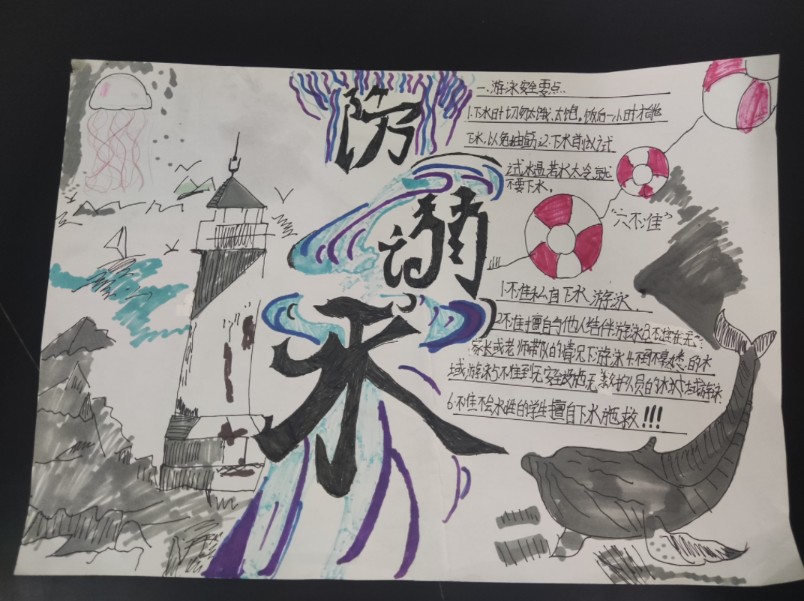 防
溺
水
一.游泳安全要点.
1.下水时切勿太饿、太饱,饭后一小时才能
下水,以免抽筋;2.下水前
试水温若水太冷就
不要下水。
"六不准"
1.不准私自下水游泳、
2.不准擅自与他人结伴游泳3.不准在无
家长或老师带队的情况下游泳4.不 不熟悉的水
域游泳5.不准到无安全设施无 人员的水域游泳
6.不准不会水性的学生擅自下水施救!!!